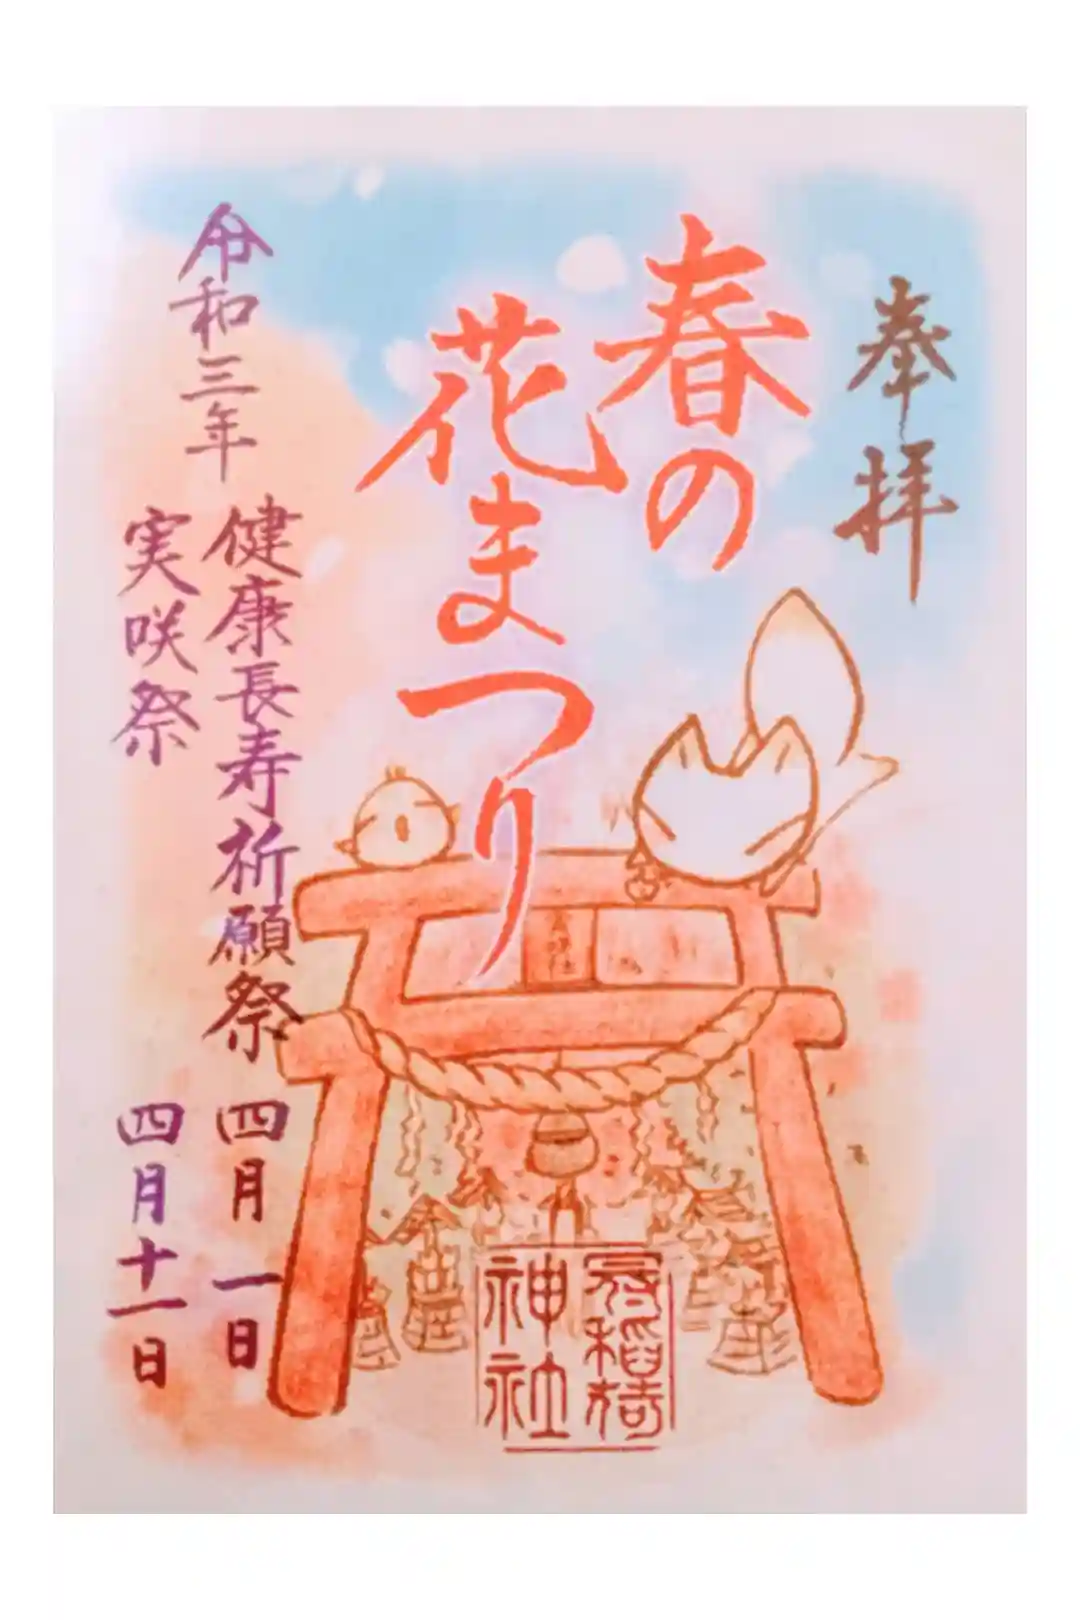 奉拝
春の
花まつり
令和三年
健康長寿祈願祭 四月一日
実咲祭 四月十一日
神社